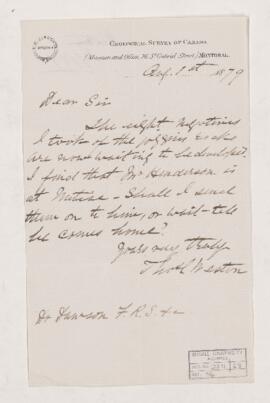 GEOLOGICAL SURVEY OF CANADA
(Museum and Office, 76, St. Gabriel Street,) MONTREAL.
Aug. 1st 1879
Dear Sir
The eight negatives
I took of the joggins rocks
are now waiting to be developed.
I find that Mr Henderson is
at Metise – Shall I send
them on to him, or wait till
he comes home?
Yours very truly
Thos C Weston
Dr Dawson F.R.S. &c
McGILL UNIVERSITY
ARCHIVES
ACC. NO.
REF.